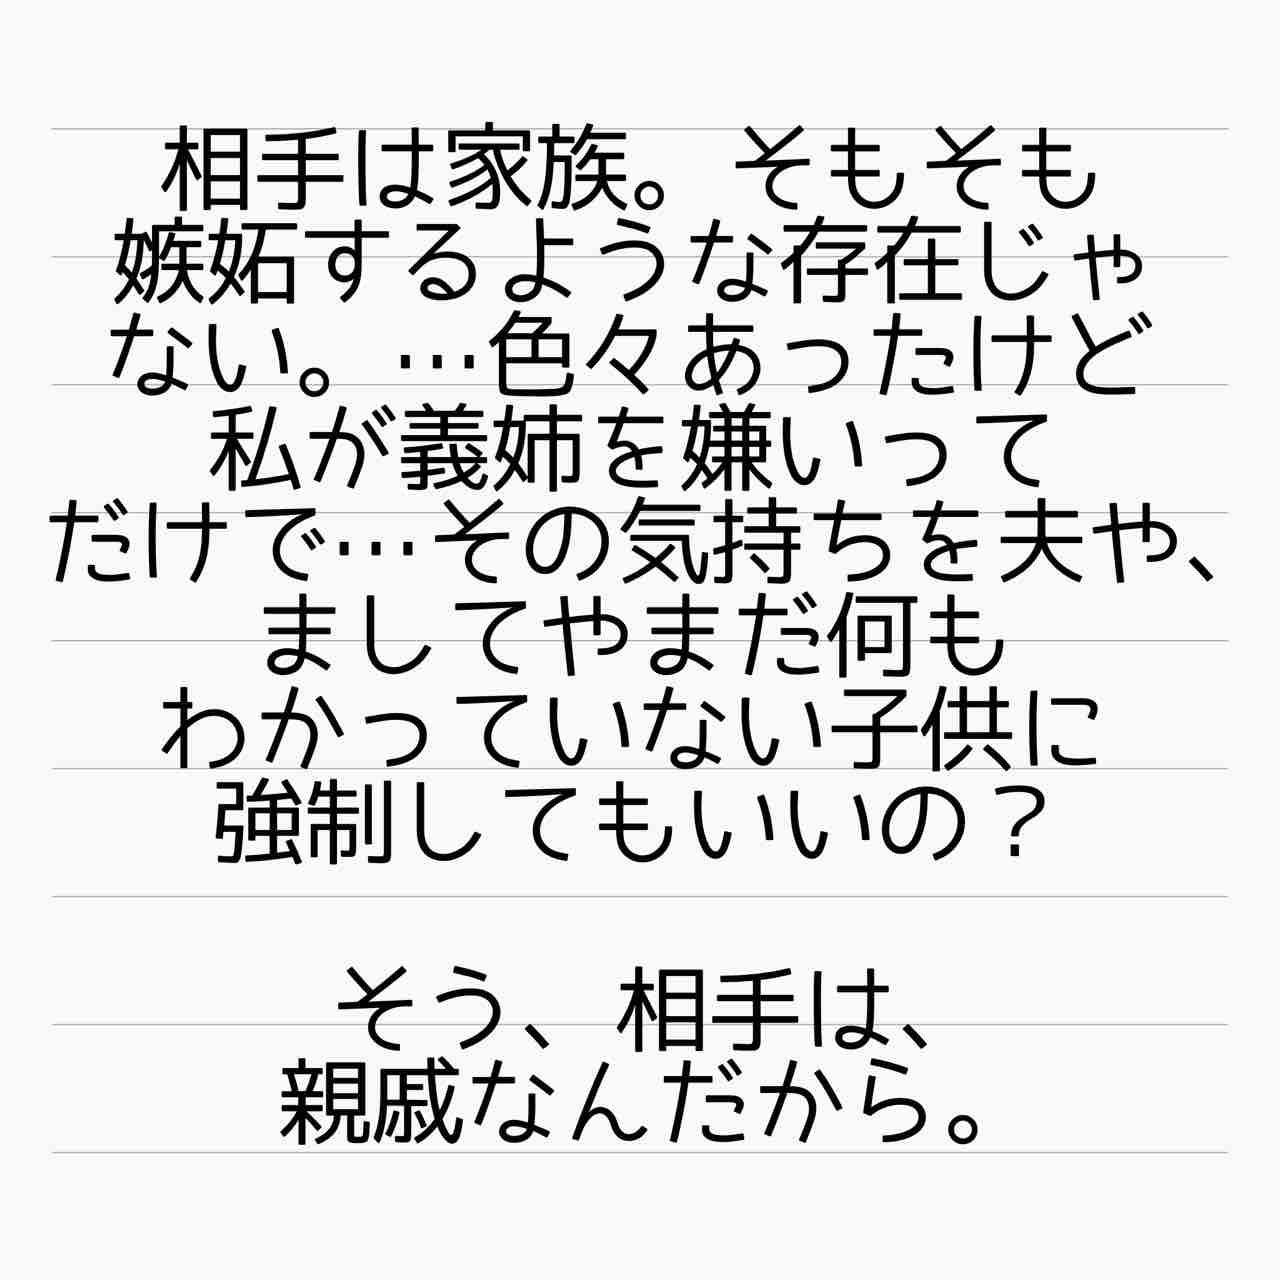 相手は家族。そもそも
嫉妬するような存在じゃ
ない。…色々あったけど
私が義姉を嫌いって
だけで…その気持ちを夫や、
ましてやまだ何も
わかっていない子供に
強制してもいいの？
そう、相手は、
親戚なんだから。